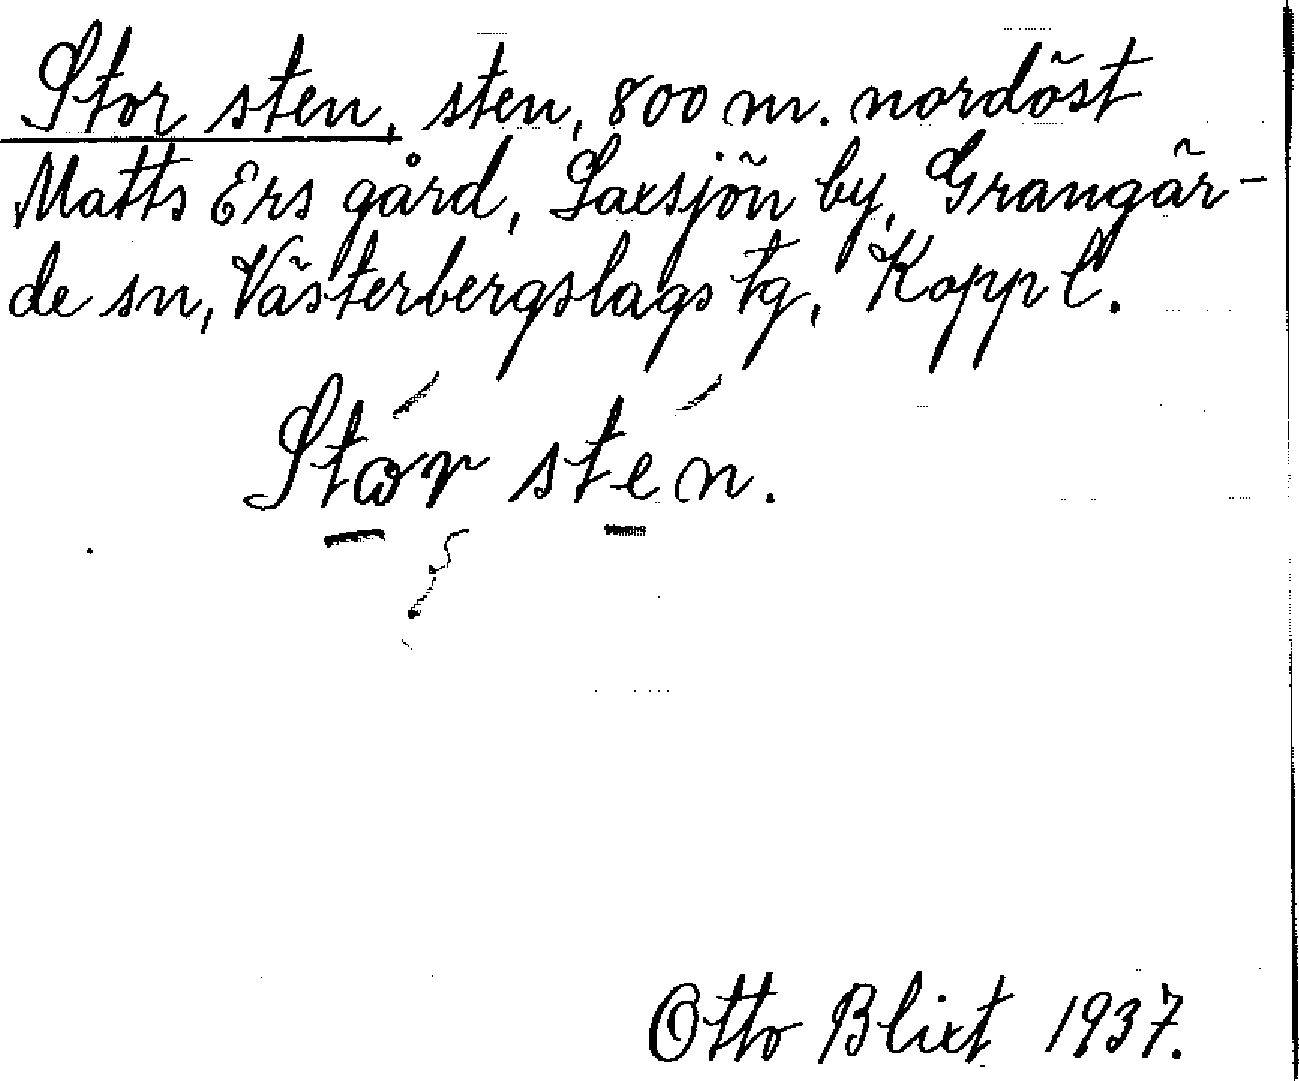 Stor sten, sten, 800 m. nordöst
Matts Ers gård, Laxsjön by, Grangär-
de sn, Västerbergslags tg, Kopp l.
Stωr sten.
Otto Blixt 1937.